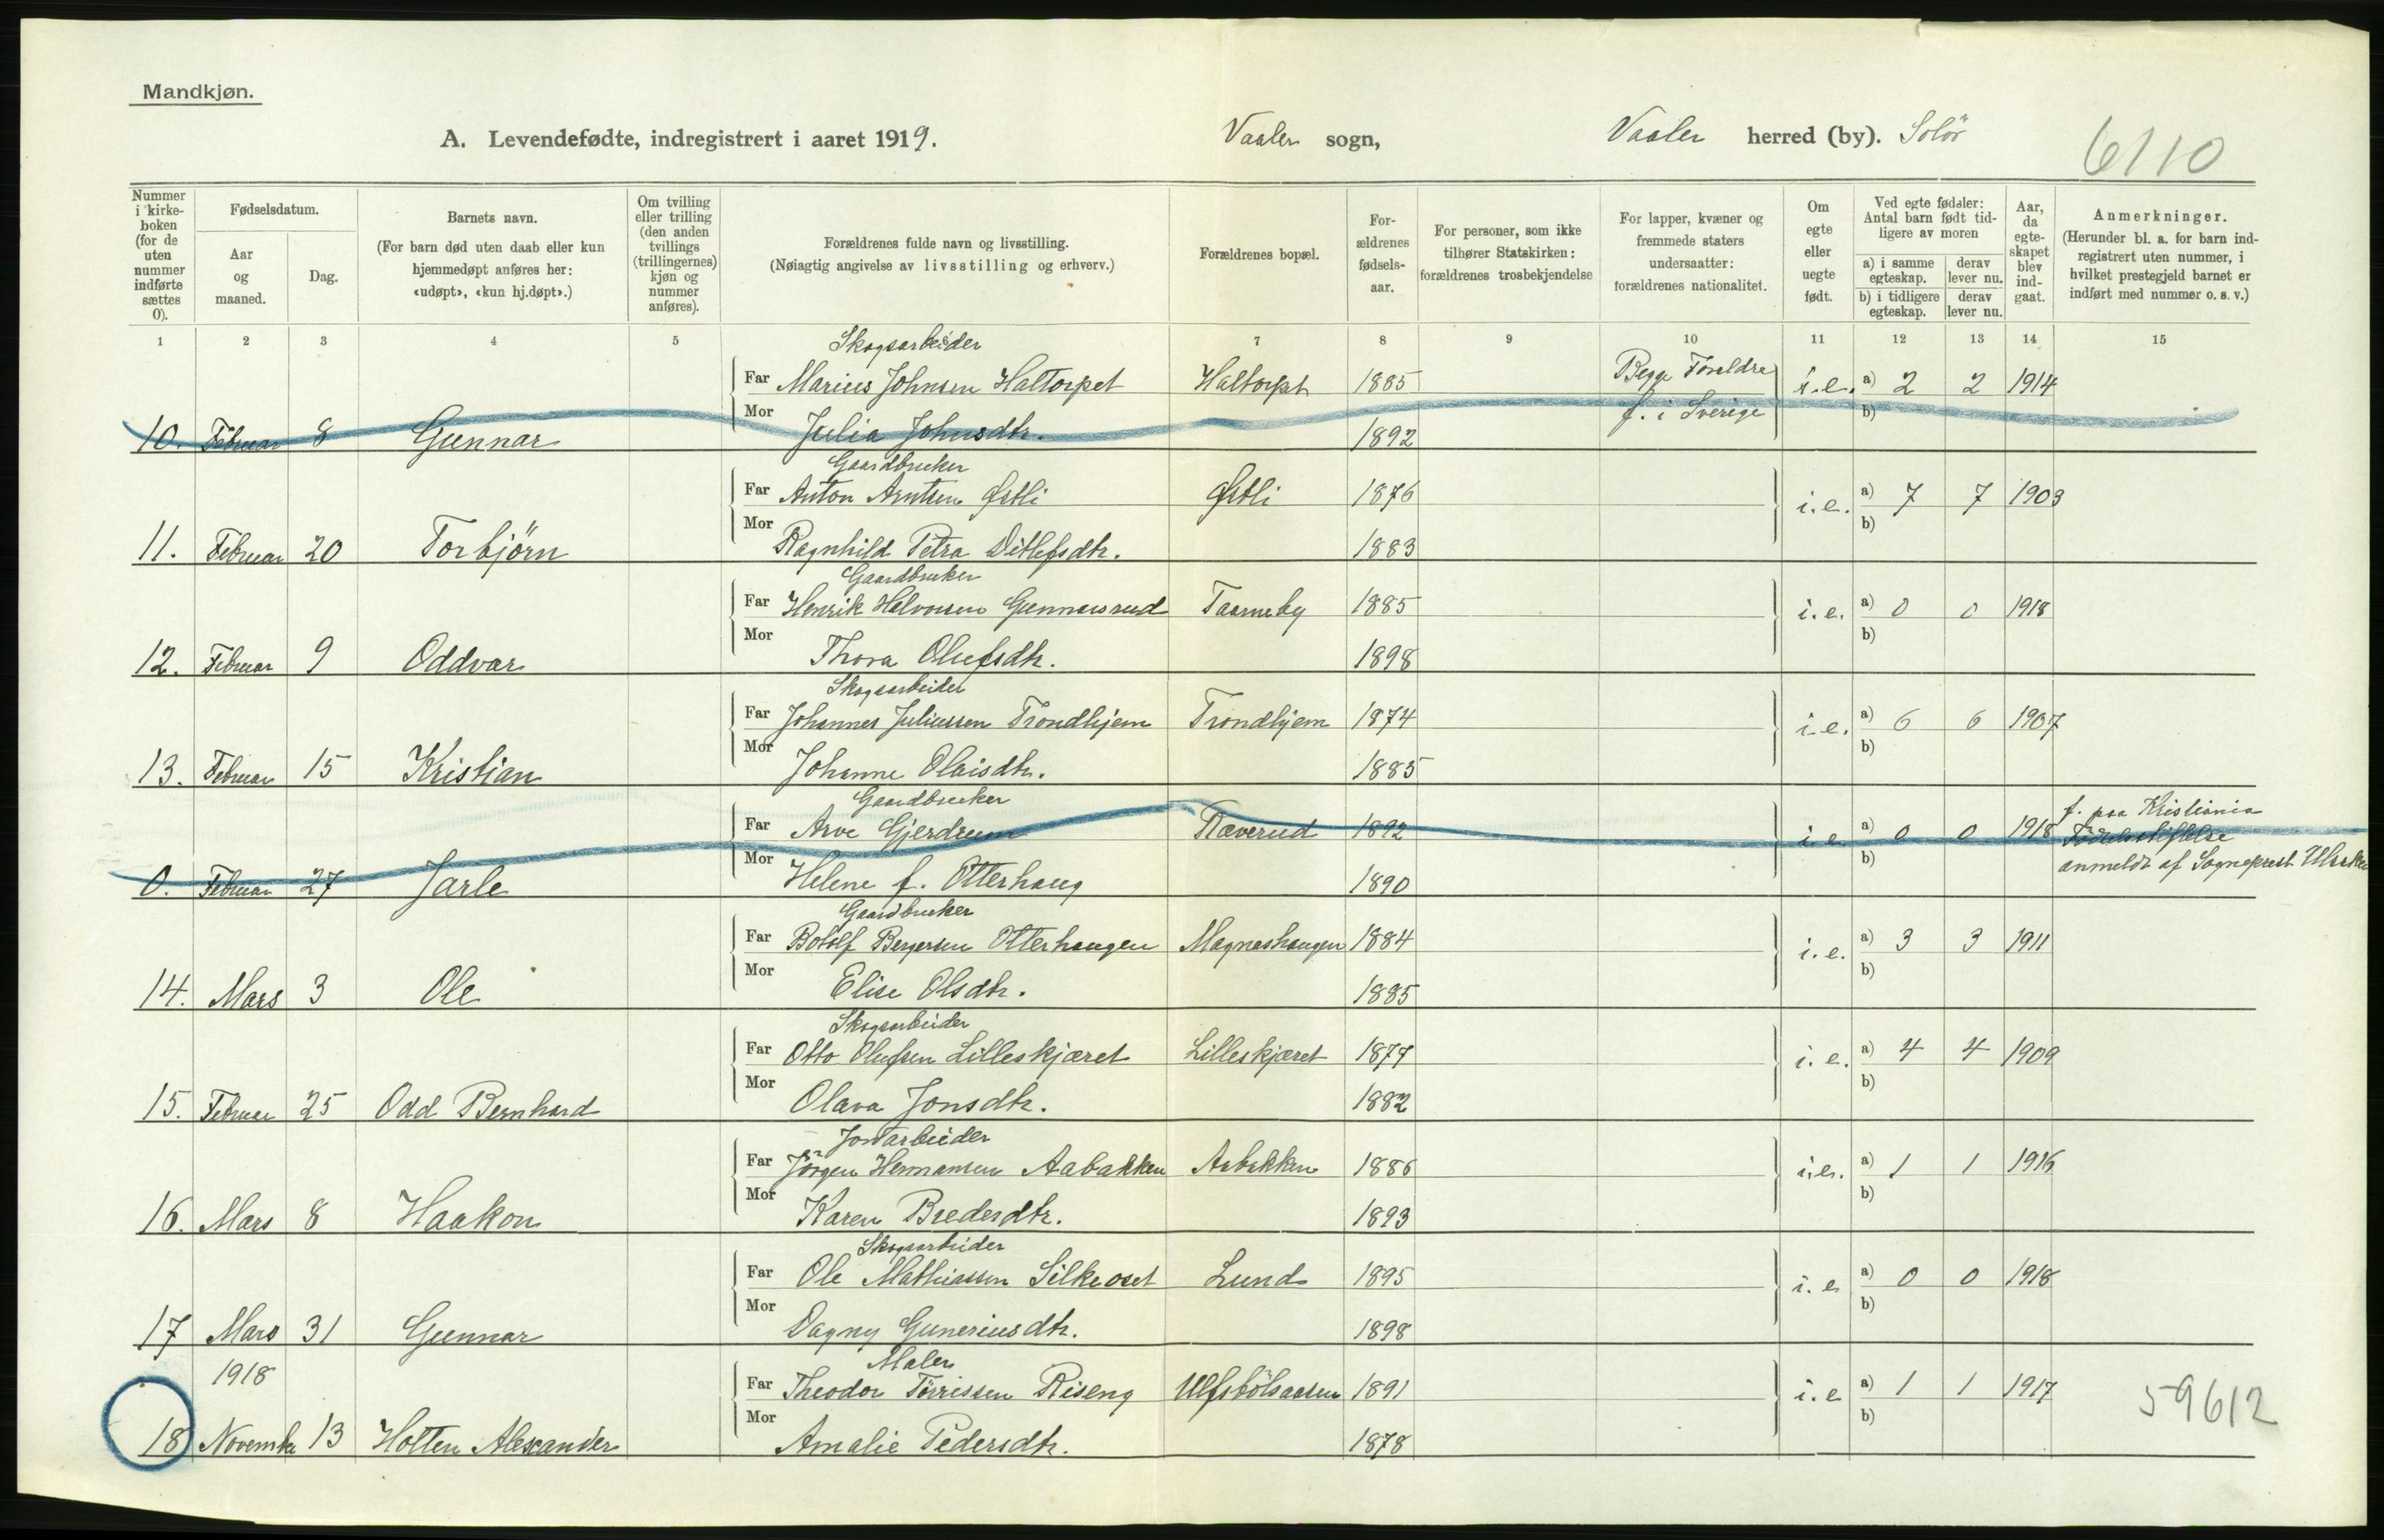 Mandkjøn.
A. Levendefødte, indregistrert i aaret 1919. Vaaler sogn, Vaaler herred (by). Solör 6110
Nummer i kirkeboken (for de uten nummer indførte sættes 0).
Fødselsdatum.
Aar og maaned.
Dag.
Barnets navn.
(For barn død uten daab eller kun hjemmedøpt anføres her: «udøpt», «kun hj.døpt».)
Om tvilling eller trilling (den anden tvillings (trillingernes) kjøn og nummer anføres).
Forældrenes fulde navn og livsstilling.
(Nøiagtig angivelse av livsstilling og erhverv.)
Forældrenes bopæl.
Forældrenes fødselsaar.
For personer, som ikke tilhører Statskirken: forældrenes trosbekjendelse
For lapper, kvæner og fremmede staters undersaatter: forældrenes nationalitet.
Om egte eller uegte født.
Ved egte fødsler: Antal barn født tidligere av moren
a) i samme egteskap. derav lever nu.
b) i tidligere egteskap. derav lever nu.
Aar, da egteskapet blev indgaat.
Anmerkninger.
(Herunder bl. a. for barn indregistrert uten nummer, i hvilket prestegjeld barnet er indført med nummer o. s. v.)
1 2 3 4 5 7 8 9 10 11 12 13 14 15
Skogsarbeider
Far Marius Johnsen Haltorpet Haltorpet 1885 Begge Foreldre i.e. a) 2 2 1914
Mor f. i Sverige b)
10. Februar 8 Gunnar Julia Johnsdtr. 1892
Gaardbruker
Far Anton Arntsen Østli Østli 1876 i.e. a) 7 7 1903
Mor b)
11. Februar 20 Torbjörn Ragnhild Petra Ditlefsdtr. 1883
Gaardbruker
Far Henrik Halvorsen Gunnarsrud Taarneby 1885 i.e. a) 0 0 1918
Mor b)
12. Februar 9 Oddvar Thora Olufsdtr. 1898
Skogsarbeider
Far Johannes Juliussen Trondhjem Trondhjem 1874 i.e. a) 6 6 1907
Mor b)
13. Februar 15 Kristian Johanne Olaisdtr. 1885
Gaardbruker
Far Arve Gjerdrum Ræverud 1892 i.e. a) 0 0 1918 f. paa Kristiania Födselsstiftelse
Mor b) anmeldt af Sogneprest
0. Februar 27 Jarle Helene f. Otterhaug 1890
Gaardbruker
Far Botolf Bergersen Otterhaugen Magneshaugen 1884 i.e. a) 3 3 1911
Mor b)
14. Mars 3 Ole Elise Olsdtr. 1885
Skogsarbeider
Far Otto Olufsen Lilleskjæret Lilleskjæret 1879 i.e. a) 4 4 1909
Mor b)
15. Februar 25 Odd Bernhard Olava Jonsdtr. 1882
Jordarbeider
Far Jörgen Hermansen Aabakken Aabakken 1886 i.e. a) 1 1 1916
Mor b)
16. Mars 8 Haakon Karen Bredesdtr. 1893
Skogsarbeider
Far Ole Mathiassen Silkeoset Lund 1895 i.e a) 0 0 1918
Mor b)
17 Mars 31 Gunnar Dagny Guneriusdtr. 1898
Maler
1918 Far Theodor Törrissen Riseng Ulfsbölsaasen 1891 i.e a) 1 1 1917 59612
Mor b)
18 November 13 Holten Alexander Amalie Pedersdtr. 1878